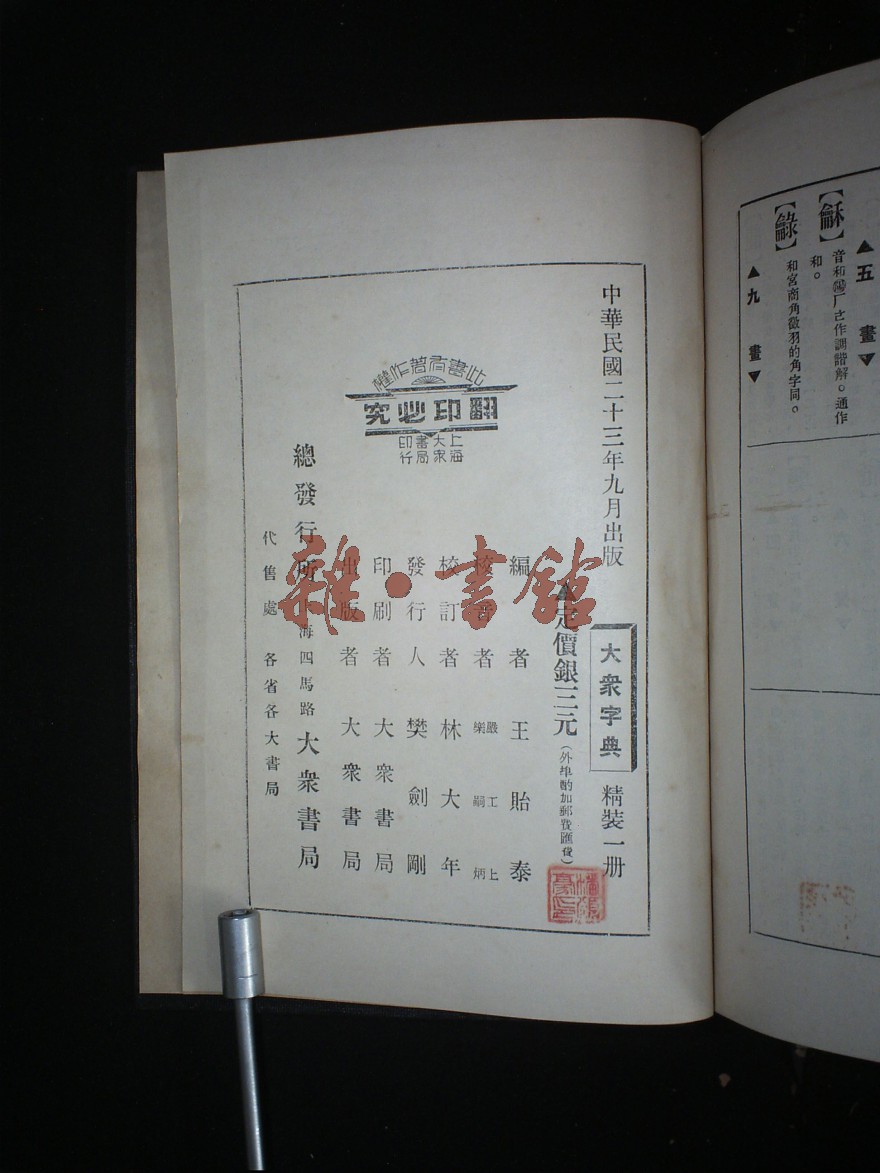 五畫
【龢】音和陽厂ㄜ作調諧解。通作
和。
【䶫】和宮商角徵羽的角字同。
九畫
中華民國二十三年九月出版
大衆字典
精裝一册
定價銀三元(外埠酌加郵費匯費)
編者王貽泰
校者嚴工上
樂嗣炳
校訂者林大年
發行人樊劍剛
印刷者大衆書局
出版者大衆書局
總發行所上海四馬路大衆書局
代售處各省各大書局
此書有著作權
翻印必究
上海
大衆
書局
印行
雜·書館